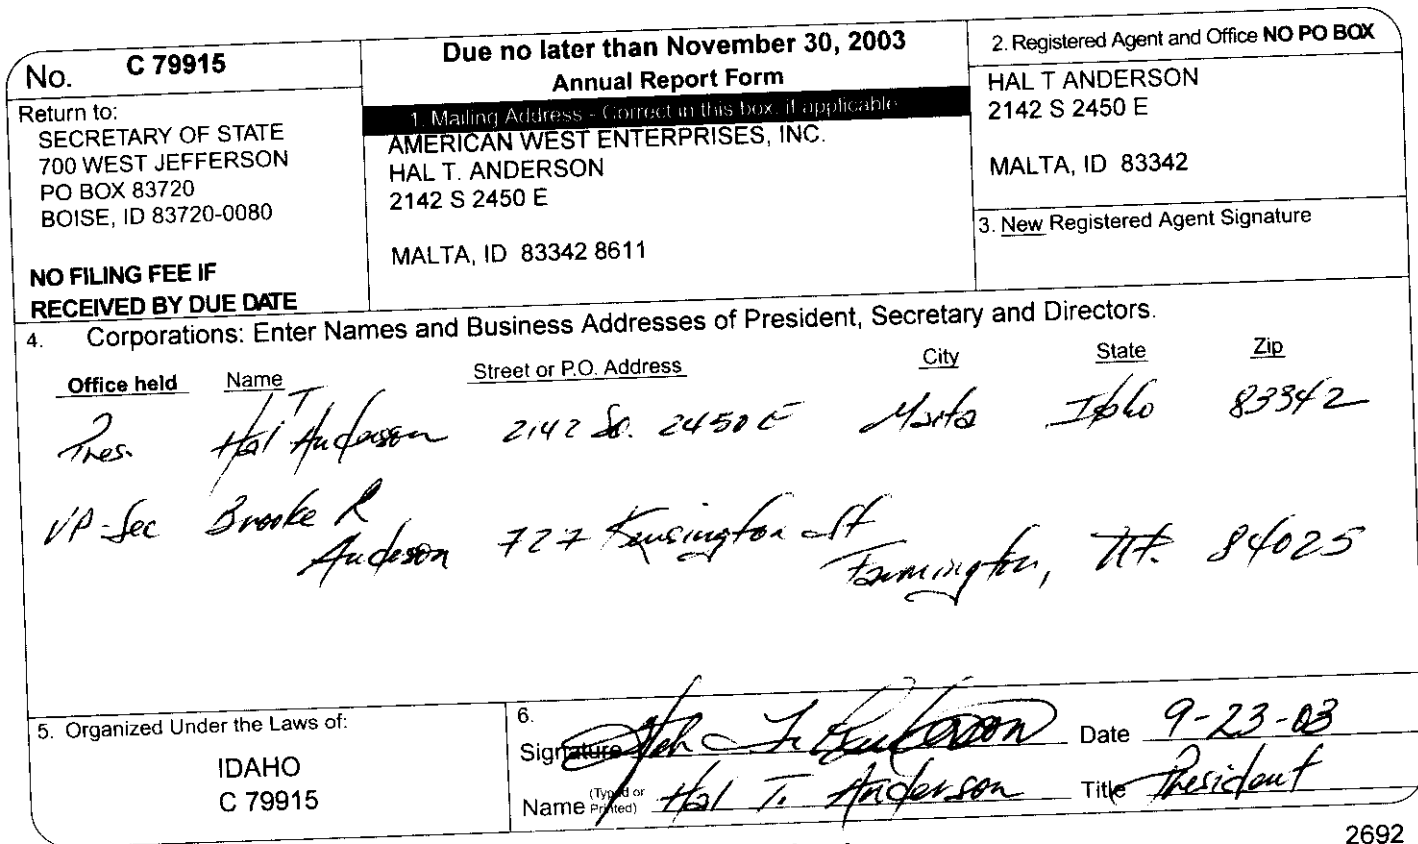 No. C 79915
Return to:
SECRETARY OF STATE
700 WEST JEFFERSON
PO BOX 83720
BOISE, ID 83720-0080
NO FILING FEE IF
RECEIVED BY DUE DATE
Due no later than November 30, 2003
Annual Report Form
1. Mailing Address - Correct in this box, if applicable
AMERICAN WEST ENTERPRISES, INC.
HAL T. ANDERSON
2142 S 2450 E
MALTA, ID 83342 8611
2. Registered Agent and Office NO PO BOX
HAL T ANDERSON
2142 S 2450 E
MALTA, ID 83342
3. New Registered Agent Signature
4. Corporations: Enter Names and Business Addresses of President, Secretary and Directors.
Office held Name Street or P.O. Address City State Zip
Pres. Hal T Anderson 2142 So. 2450 E Malta Idaho 83342
VP-Sec Brooke R
Anderson 727 Kensington St Farmington, Ut. 84025
5. Organized Under the Laws of:
IDAHO
C 79915
6.
Signature Date 9-23-03
Name (Typed or Printed) Hal T. Anderson Title President
2692